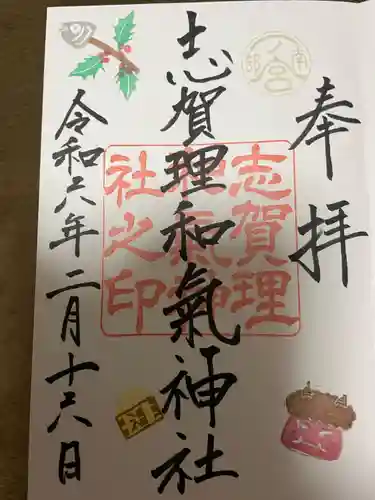 奉拝
志賀理和氣神社
志賀理
和氣神
社之印
令和六年二月十六日